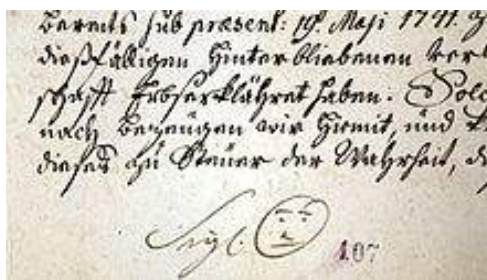 Bereits sub præsent: 19ᵗ Maji 1741. 
dießfälligen Hinterbliebenen
schafft Erbserklähret haben: Solc
nach bezeugen wir hiemit, und
dieses zu Steuer der Wahrheit, d
Sigl.
107